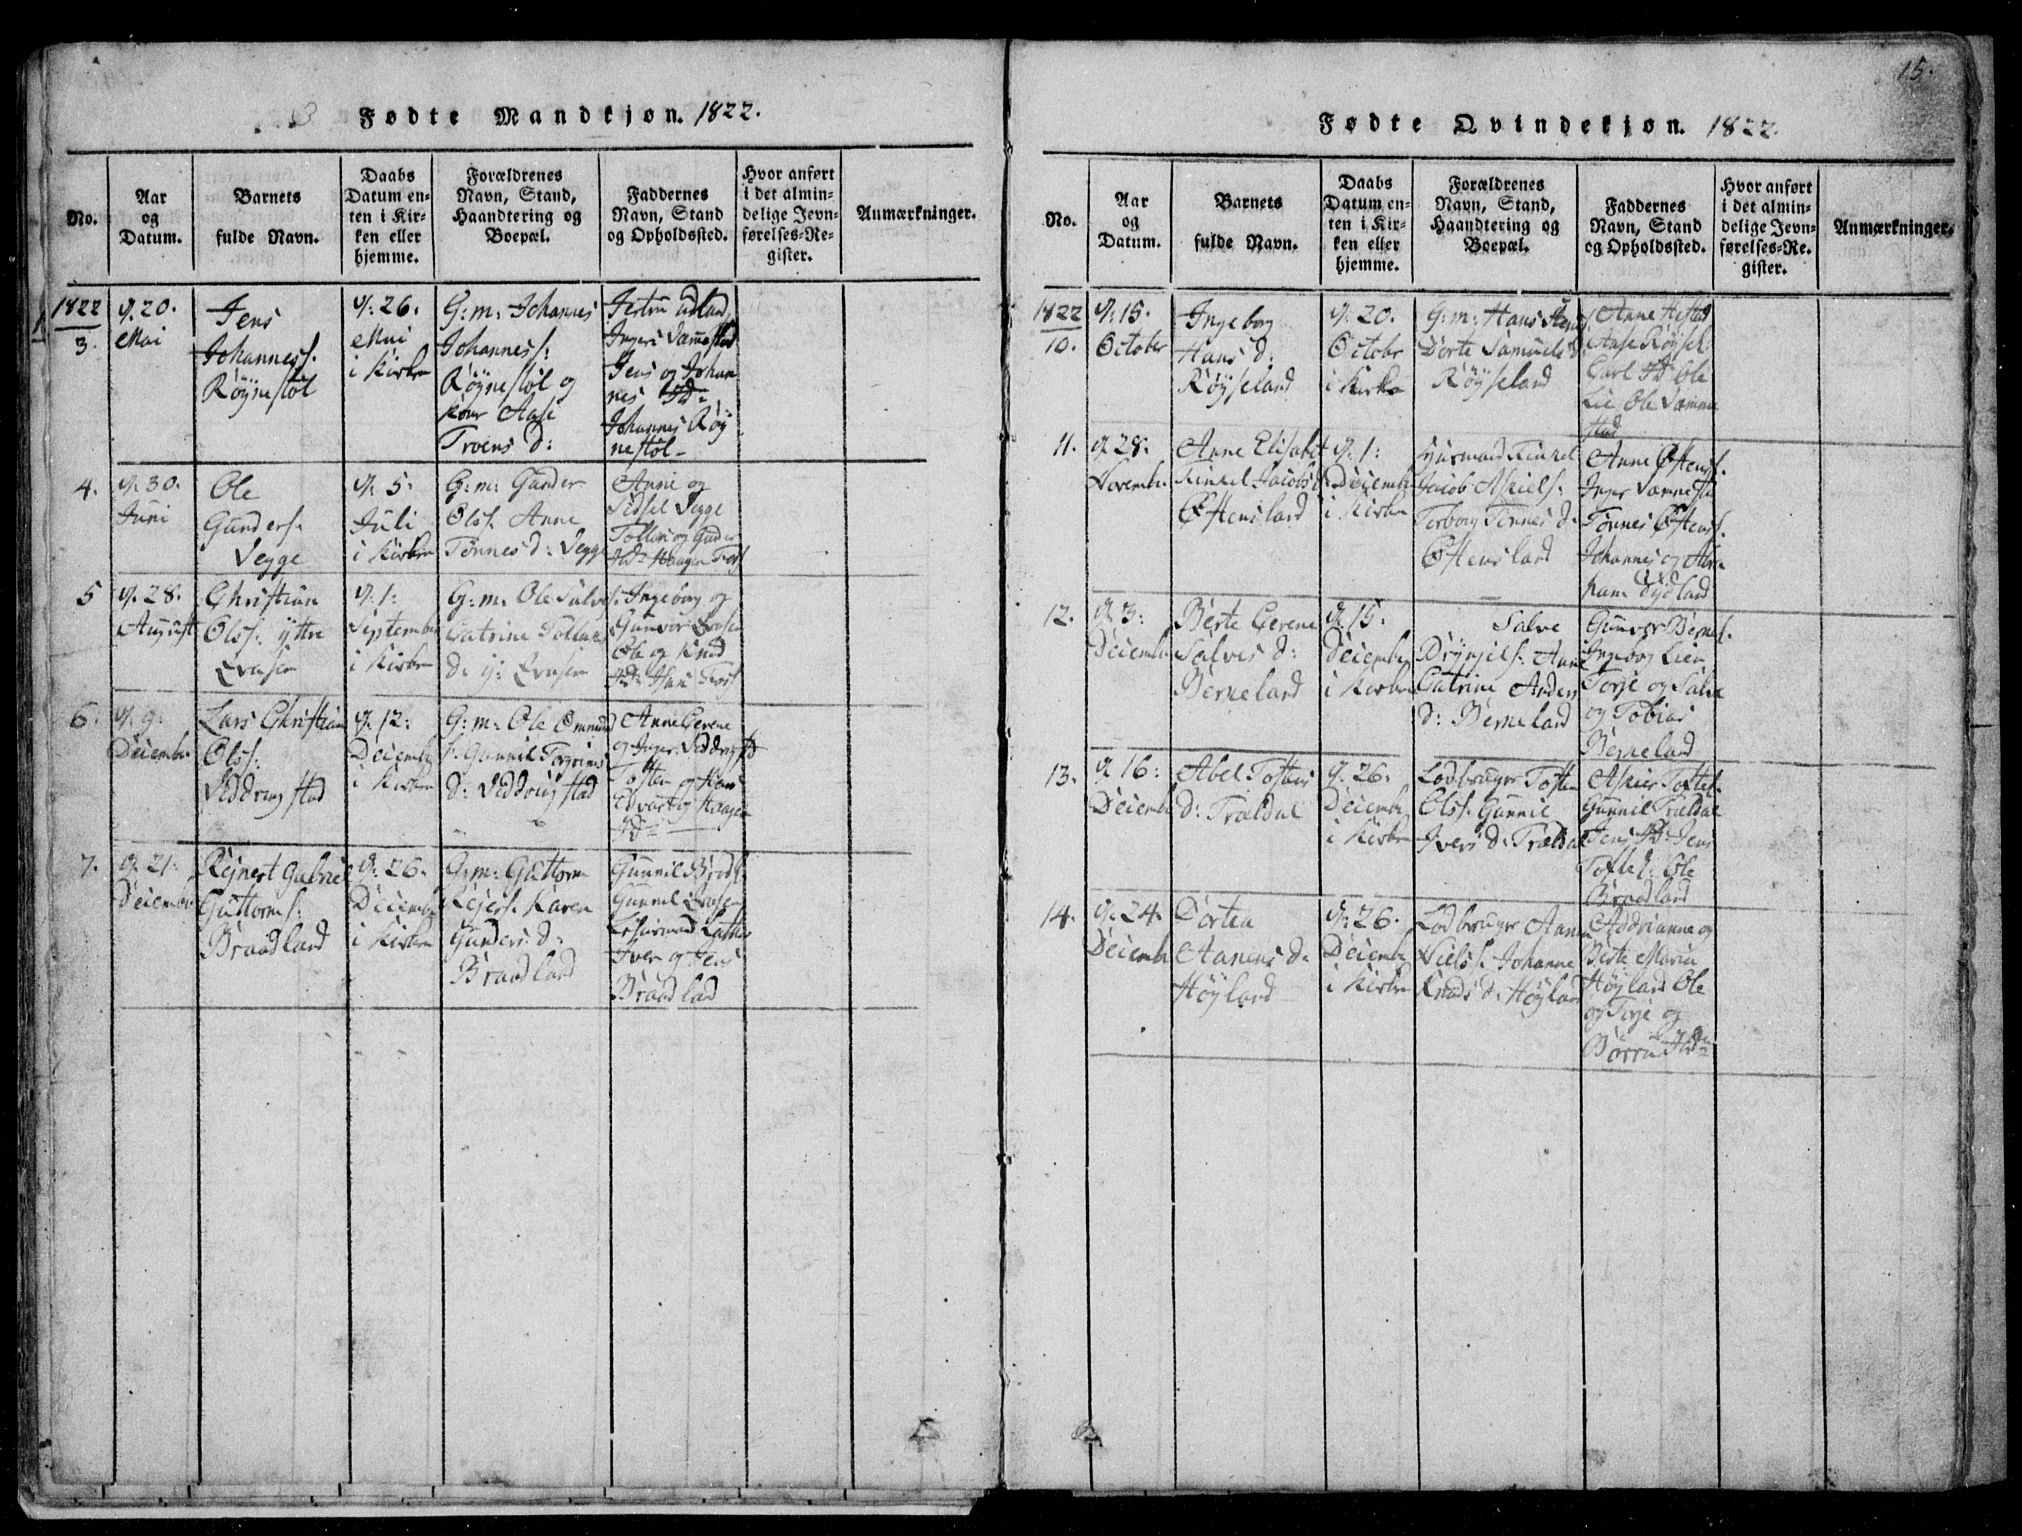 Fødte Mandkjøn. 1822.
No.
Aar
og
Datum.
Barnets
fulde Navn.
Daabs
Datum en-
ten i Kir-
ken eller
hjemme.
Forældrenes
Navn, Stand,
Haandtering og
Boepæl.
Faddernes
Navn, Stand
og Opholdssted.
Hvor anført
i det almin-
delige Jevn-
førelses-Re-
gister.
Anmærkninger.
1822
3.
d. 20.
Mai
Jens
Johanness.
Røÿnestøl
d. 26.
Mai
i Kirken
G: m: Johannes
Johanness:
Røÿnestøl og
Aase
Troens d:
Jens og Johan
nes
Johannes Røÿ
nestøl
4.
d. 30.
Juni
Ole
Gunders.
Segge
d. 5
Juli
i Kirken
G: m: Gunder
Ols. Anne
Tønnes d: Segge
Anne og
Sidsel Segge
5
d. 28.
August
Christian
Ols. ÿttre
Qvasen
d. 1:
September
i Kirken
G: m: Ole Salves.
Catrine
d: ÿ: Qvasen
Ingeborg og
Gunvor Qvasen
Ole og Knud
6.
d. 9:
December
Lars Christian
Ols:
d. 12:
December
i Kirken
G: m: Ole Ommund
s. Gunnil Torgrims
d:
Anne Gerene
og Inger
Tosten og Hans
Edvart og Haagen
7.
d. 21:
December
Rejnert Gabriel
Guttorms.
Braadland
d. 26.
December
i Kirken
G: m: Guttorm
Rejers. Karen
Gunders d:
Braadland
Gunnil
Gunnil Qvasen
Iver og Jens
Braadlad
15.
Fødte Qvindekjøn. 1822.
No.
Aar
og
Datum.
Barnets
fulde Navn.
Daabs
Datum en-
ten i Kir-
ken eller
hjemme.
Forældrenes
Navn, Stand,
Haandtering og
Boepæl.
Faddernes
Navn, Stand
og Opholdssted.
Hvor anført
i det almin-
delige Jevn-
førelses-Re-
gister.
Anmærkninger.
1822
10.
d. 15.
October
Ingeborg
Hans d:
Røÿseland
d. 20.
October
i Kirken
G: m: Hans
Dorte Samuels d:
Røÿseland
Anne
Aase
Carl Ole
Lie Ole
11.
d. 28:
November
Anne Elisabet
Jacobs d:
Østensland
d. 1:
December
i Kirken
Huusmand
Jacob Askiels:
Torborg Tønnes d:
Østensland
Anne
Inger
Tønnes
Johannes og Abra
ham Sÿdland
12.
d. 3:
December
Berte Gerene
Salves d:
Berneland
d. 15:
December
i Kirken
Salve
Anne
Catrine Anders
d: Berneland
Gunvor
Ingebor Lien
Torje og Salve
og Tobias
Berneland
13.
d. 16:
December
Abel Tostens
d: Trældal
d. 26:
December
i Kirken
Lodbruger Tosten
Ols. Gunnil
Ivers d: Trældal
Gunnil Trældal
Jens Jens
Ole
Braadland
14.
d. 24.
December
Dortea
Aanens d:
Høÿland
d. 26.
December
i Kirken
Lodbruger Aanen
Niels. Johanne
Knuds d: Høÿland
Addrianne og
Berte Maria
Høÿland Ole
og Torje og
Børru